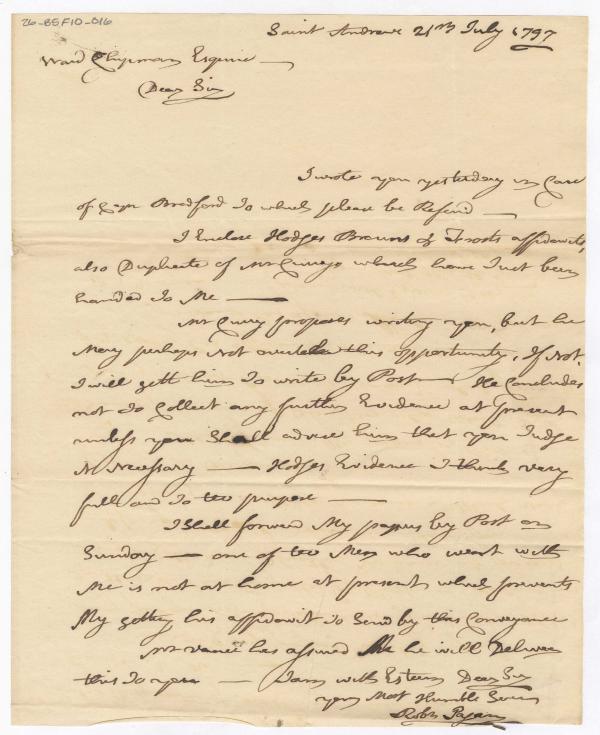 26-B5F10-016
Saint Andrews 21st July 1797
Ward Chipman Esquire —
Dear Sir
I wrote you yesterday in Care
of Capn Bradford To which please be Referd —
I Enclose Hodges Browns & Frosts affidavits,
also Duplicate of Mr Currys which have Just been
handed To Me —
Mr Curry proposes writing you, but he
May perhaps Not overtake this opportunity, If Not
I will gett him To write by Post — He Concludes
not To Collect any further Evidence at present
unless you Shall advise him that you Judge
it Necessary — Hodges Evidence I think very
full and To the purpose —
I Shall forward My papers by Post on
Sunday — one of the Men who went with
Me is not at home at present which prevents
My getting his affidavit To Send by this Conveyance
Mr Vance has assured Me he will Deliver
this To you — I am with Esteem Dear Sir
your Most Humble Serv
Robt Pagan